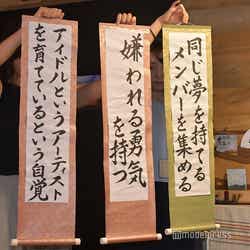 同じ夢を持てる
メンバーを集める
嫌われる勇気
を持つ
アイドルというアーティスト
を育てているという自覚
modelpress